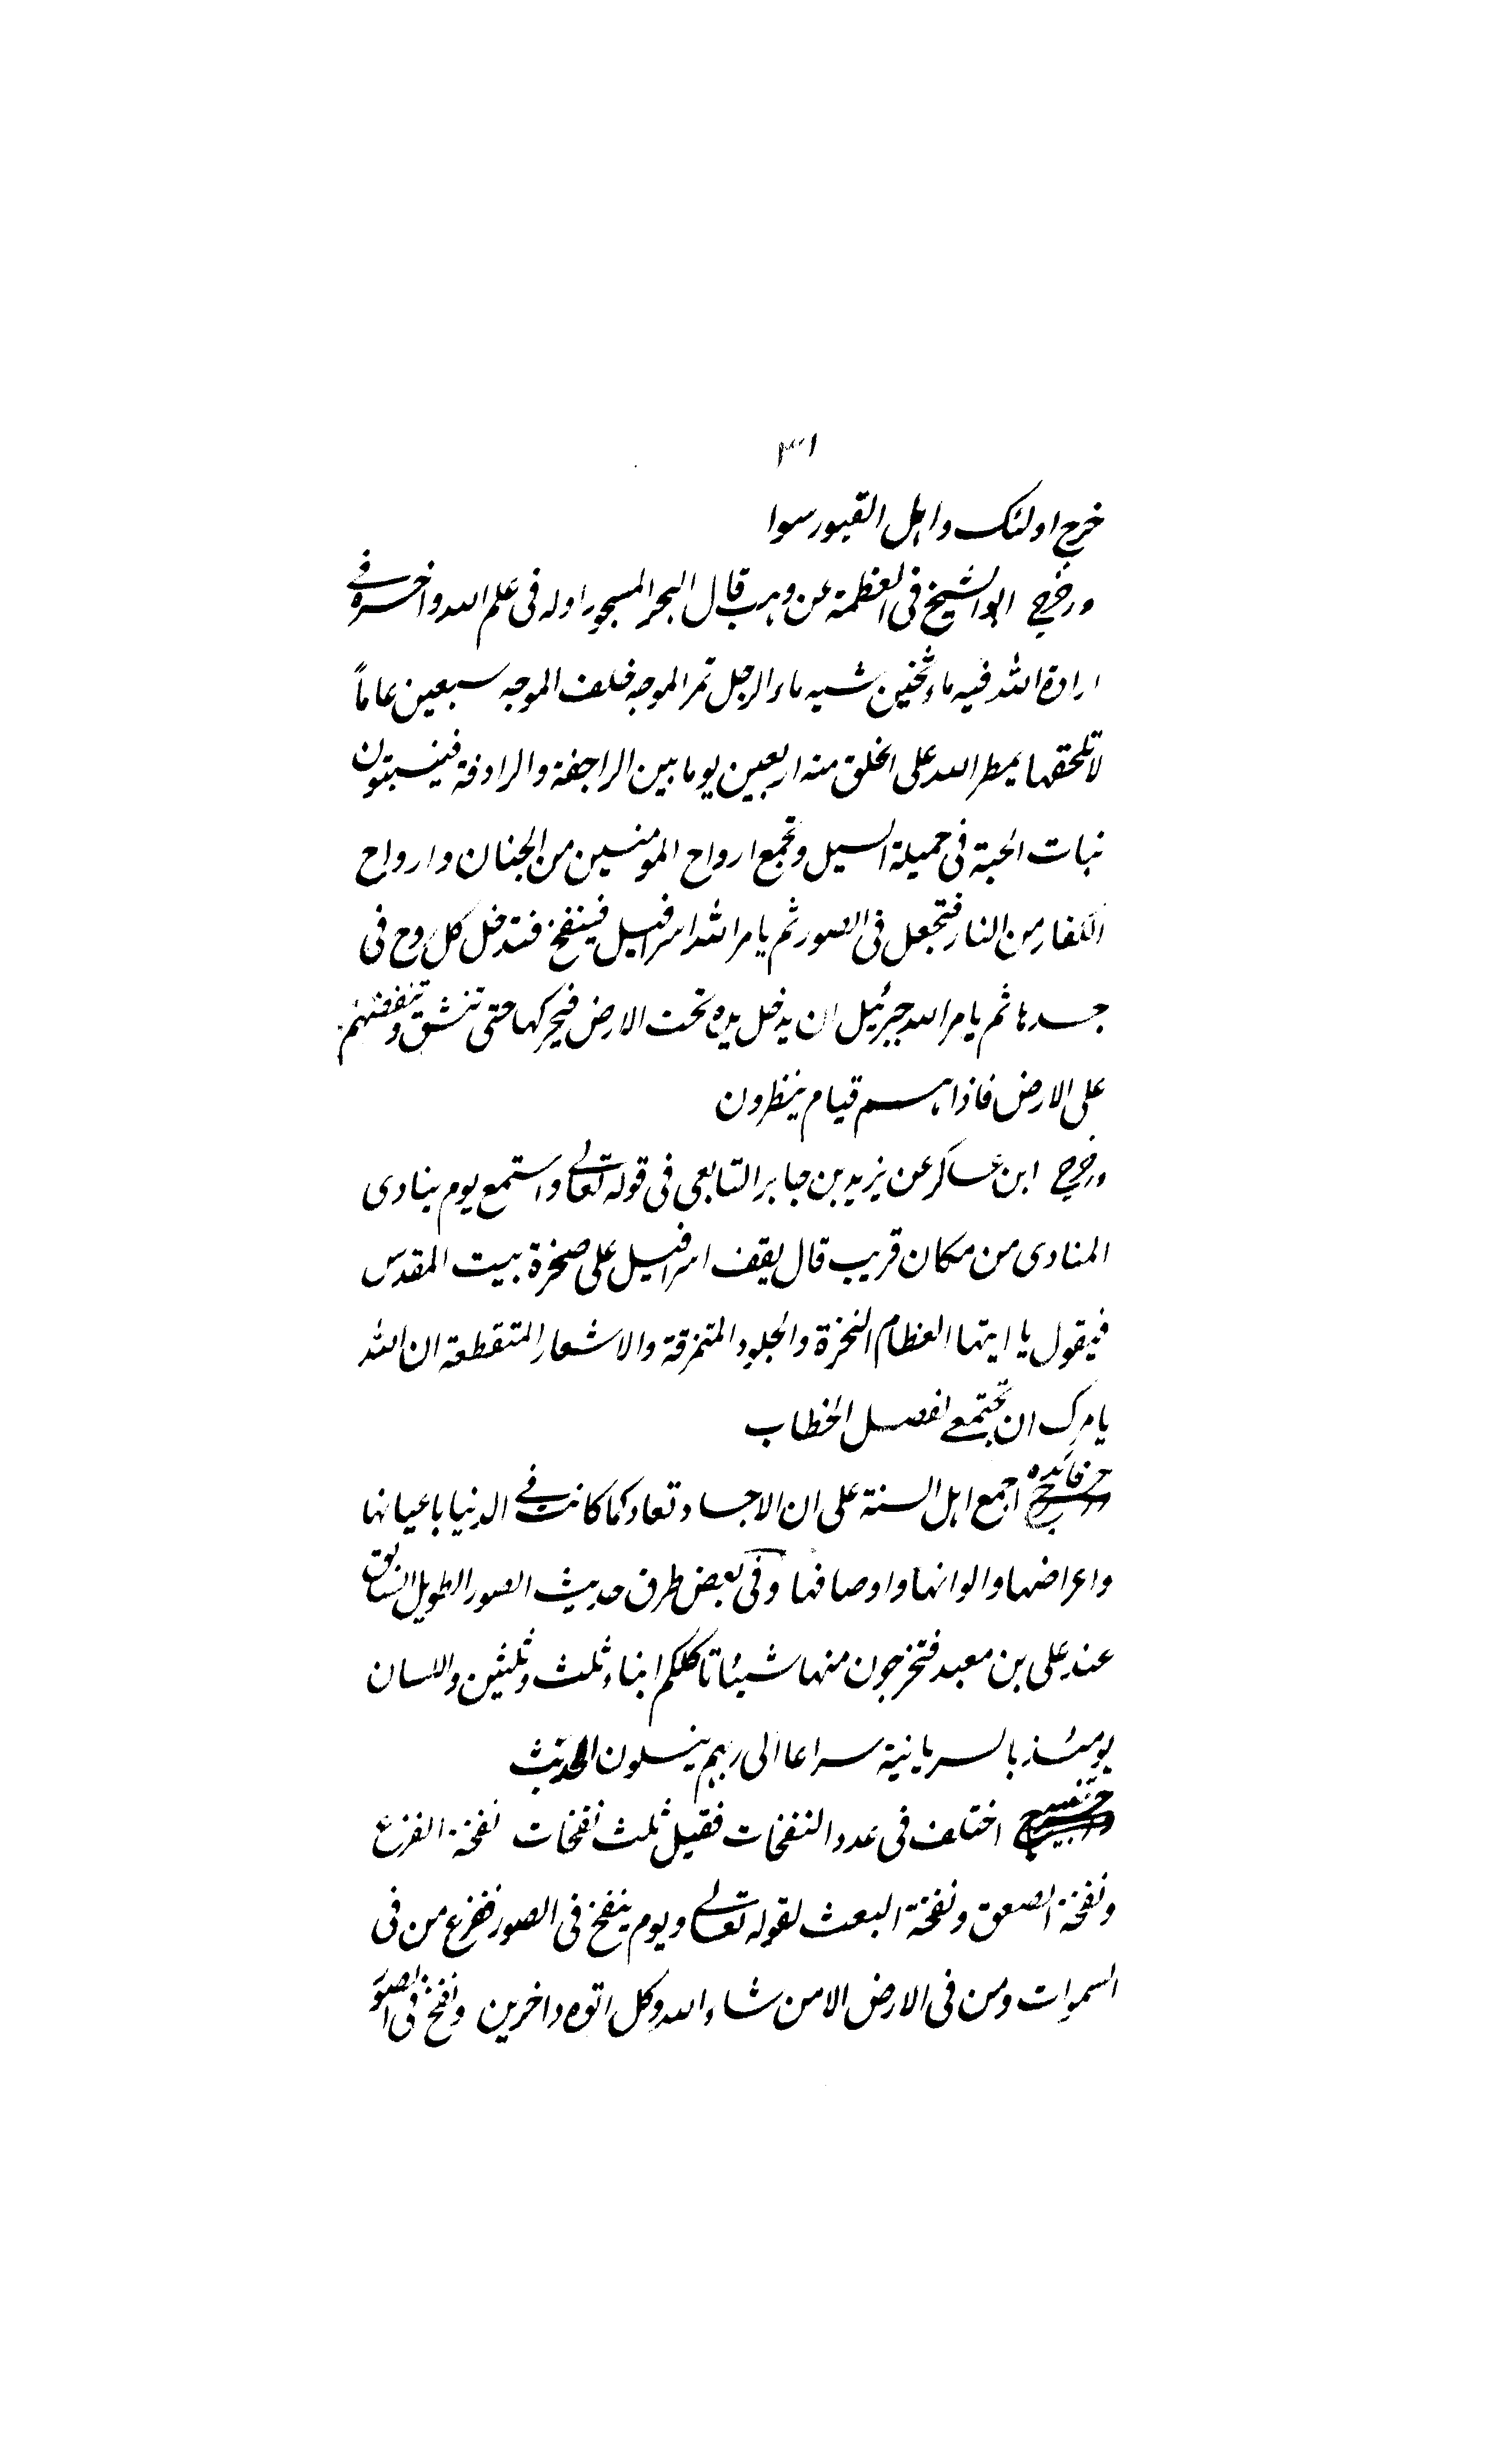 ٣١
خرج اولئك واهل القبور سوا
واخرج ابو الشيخ فى العظمة عن وهب قال البحر المسجور اوله فى علم الله واخره فى
ارادة الله فيه ماء ثخين شبه ماء الرجل تمر الموجه خلف الموجه سبعين عاماً
لا تلحقها يمطر الله على الخلق منه اربعين يوما بين الراجفة والرادفة فينبتون
نبات الحبة فى حميلة السيل وتجمع ارواح المومنين من الجنان وارواح
الكفار من النار فتجعل فى الصور ثم يامر الله اسرافيل فينفخ فتدخل كل روح فى
جسدها ثم يامر الله جبرئيل ان يدخل يده تحت الارض فيحركها حتى تنشق وتنفضهم
على الارض فاذا هم قيام ينظرون
واخرج ابن عساكر عن يزيد بن جابر التابعى فى قوله تعالى واستمع يوم ينادى
المنادى من مكان قريب قال يقف اسرافيل على صخرة بيت المقدس
فيقول يا ايتها العظام النخرة والجلود المتمزقة والاشعار المتقطعة ان الله
يامرك ان تجتمعى لفصل الخطاب
فائده اجمع اهل السنة على ان الاجساد تعاد كما كانت فى الدنيا باعيانها
واعراضها والوانها واوصافها وفى بعض طرق حديث الصور الطويل السابق
عند على بن معبد فتخرجون منها شبابا كلكم ابناء ثلث وثلثين واللسان
يومئذ بالسريانية سراعا الى ربهم ينسلون الحديث
اختلف فى عدد النفخات فقيل ثلث نفخات نفخة الفزع
ونفخة الصعق ونفخة البعث لقوله تعالى ويوم ينفخ فى الصور ففزع من فى
السموات ومن فى الارض الا من شاء الله وكل اتوه داخرين ونفخ فى الصور